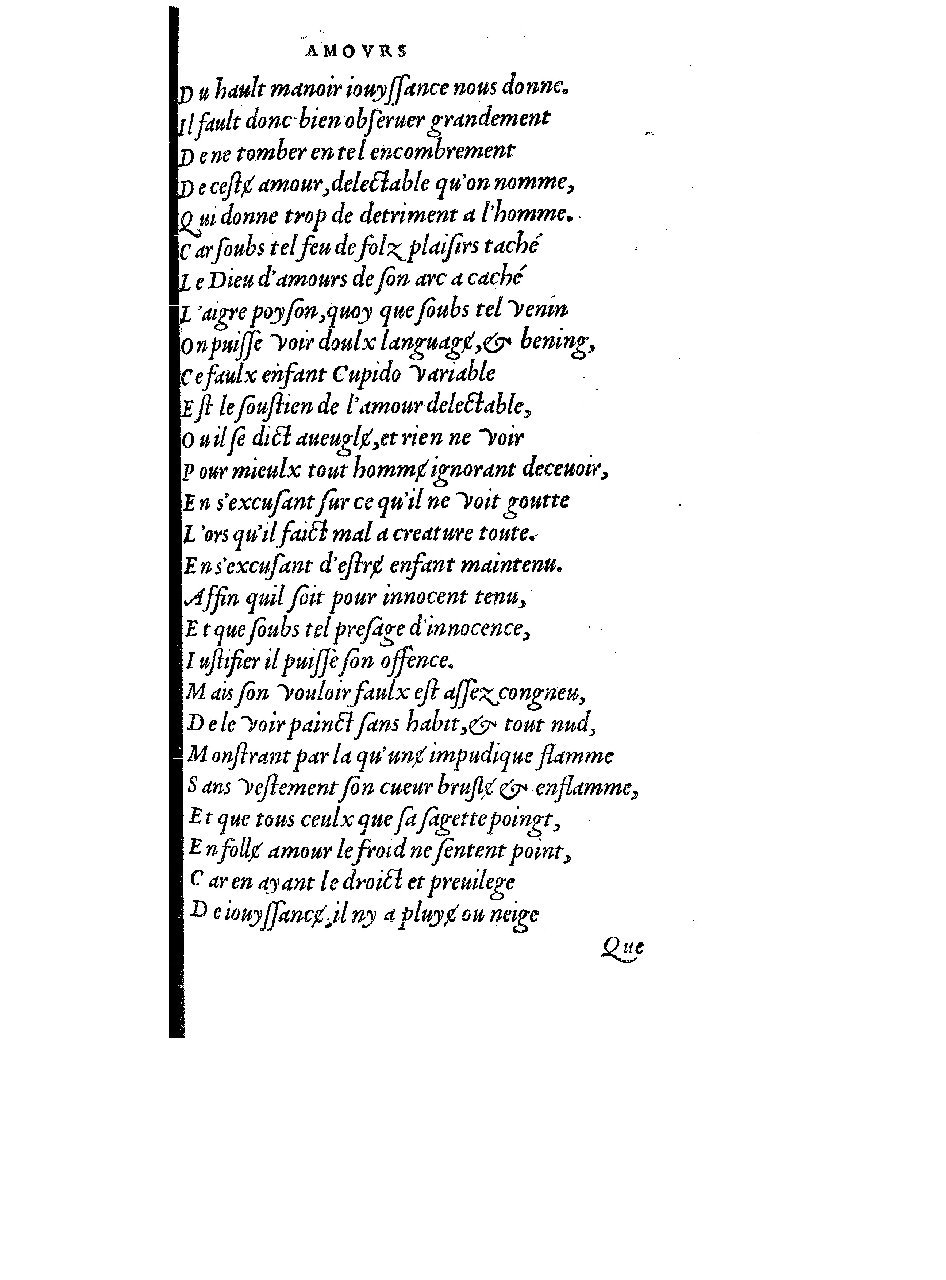 AMOVRS
Du hault manoir iouyſſance nous donne.
Il fault donc bien obſeruer grandement
De ne tomber en tel encombrement
De ceſtɇ amour, delectable qu'on nomme,
Qui donne trop de detriment a l'homme.
Car ſoubs tel feu de folz plaiſirs taché
Le Dieu d'amours de ſon arc a caché
L'aigre poyſon, quoy que ſoubs tel venin
On puiſſe voir doulx languagɇ, & bening,
Ce faulx enfant Cupido variable
Eſt le ſouſtien de l'amour delectable,
Ou il ſe dict aueuglɇ, et rien ne voir
Pour mieulx tout hommɇ ignorant deceuoir,
En s'excuſant ſur ce qu'il ne voit goutte
L'ors qu'il faict mal a creature toute.
En s'excuſant d'eſtrɇ enfant maintenu.
Affin quil ſoit pour innocent tenu,
Et que ſoubs tel preſage d'innocence,
Iuſtifier il puiſſe ſon offence.
Mais ſon vouloir faulx eſt aſſez congneu,
De le voir painct ſans habit, & tout nud,
Monſtrant par la qu'unɇ impudique flamme
Sans veſtement ſon cueur bruſlɇ & enflamme,
Et que tous ceulx que ſa ſagette poingt,
En follɇ amour le froid ne ſentent point,
Car en ayant le droict et preuilege
De iouyſſancɇ, il ny a pluyɇ ou neige
Que